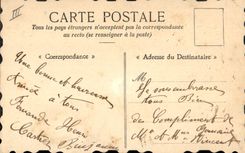 III
CARTE POSTALE
Tous les pays étrangers n'acceptent pas la correspondance
au recto (se renseigner à la poste)
« Correspondance »
« Adresse du Destinataire »
Une bonne et heureuse
Année à tous
Fernande Henri
Benjamin
M
Je vous embrasse
tous Bien
des Compliments de
Mr et Mme
Vincent